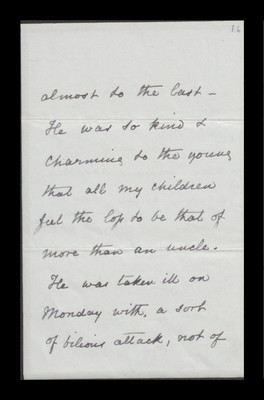 almost to the last –
He was so kind &
charming to the young
that all my children
feel the loss to be that of
more than an uncle.
He was taken ill on
Monday with, a sort
of bilious attack, not of